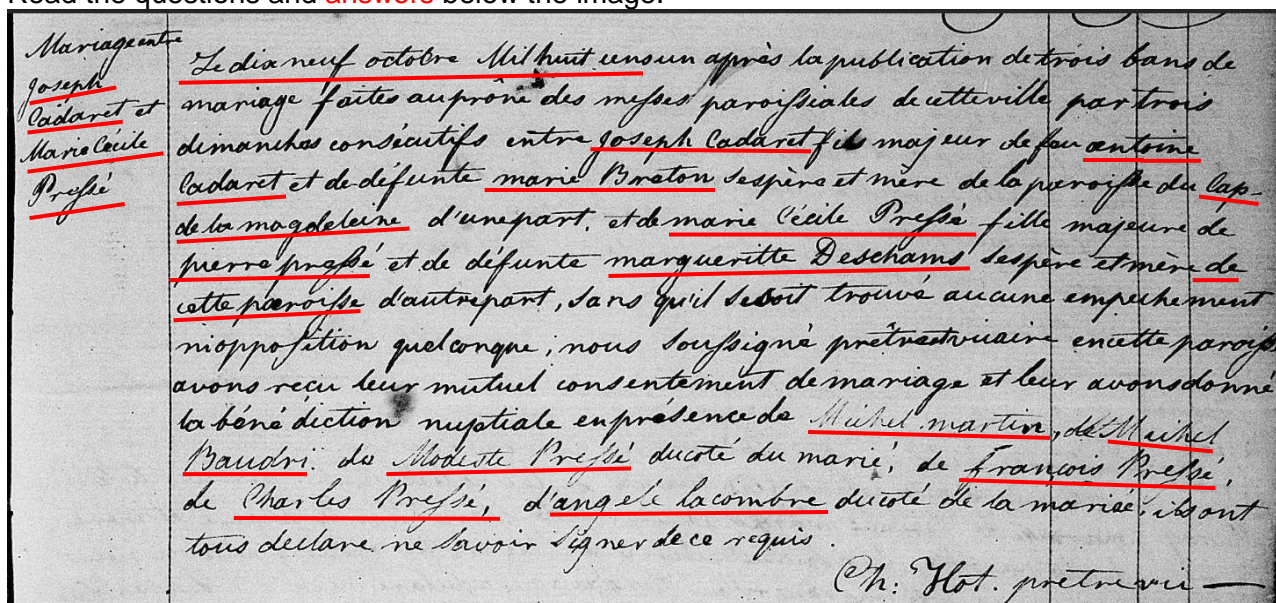 Read the questions and answers below the image.
Mariage entre
Joseph
Cadaret et
Marie Cécile
Pressé
Le dix neuf octobre Mil huit cens un après la publication de trois bans de
mariage faites au prône des messes paroissiales de cette ville par trois
dimanches consécutifs entre Joseph Cadaret fils majeur de feu antoine
Cadaret et de défunte marie Breton ses père et mère de la paroisse du Cap-
de la magdeleine d'une part, et de marie Cécile Pressé fille majeure de
pierre pressé et de défunte margueritte Deschams ses père et mère de
cette paroisse d'autre part, sans qu'il se soit trouvé aucune empechement
ni opposition quelconque, nous soussigné prêtre et vicaire en cette paroisse
avons reçu leur mutuel consentement de mariage et leur avons donné
la bénédiction nuptiale en présence de Michel martin, de Michel
Baudri de Modeste Pressé du coté du marié, de françois Pressé,
de Charles Pressé, d'angele lacombre du coté de la mariée, ils ont
tous declare ne savoir signer de ce requis.
Ch: Hot. pretre vic